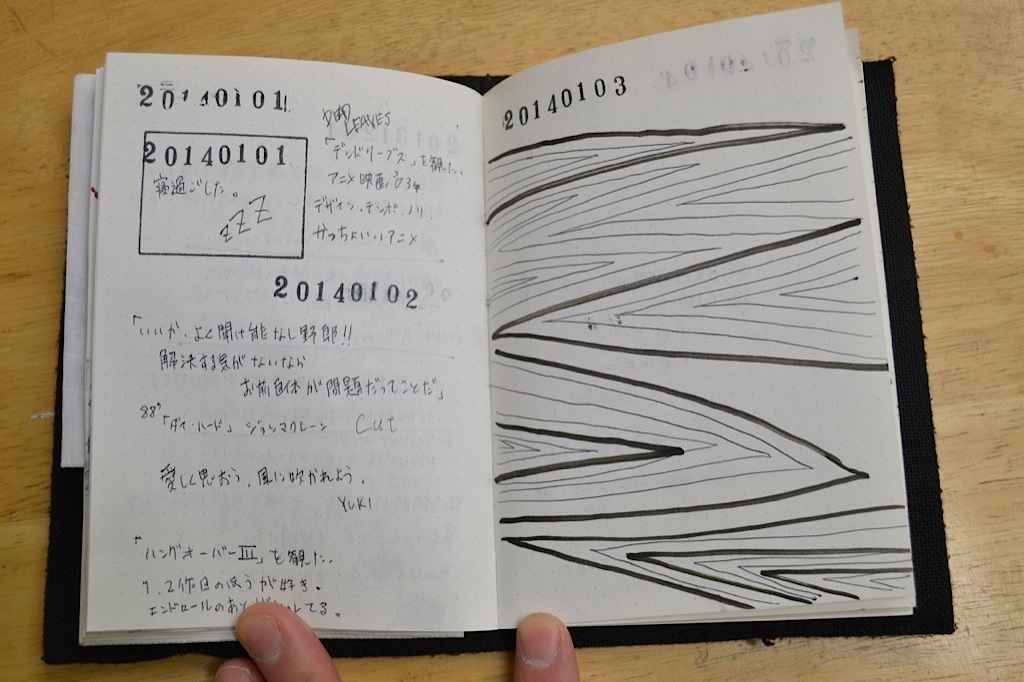 20140101
20140101
寝過ごした。
zzZ
LEAVES
「デッドリーブス」を観た。
アニメ映画
デザイン、テンポ、ノリ、
かっちょいいアニメ
20140102
「いいか、よく聞け能なし野郎!!
解決する気がないなら
お前自体が問題だってことだ」
88' 「ダイ・ハード」 ジョンマクレーン Cut
愛しく思おう、風に吹かれよう。
YUKI
「ハングオーバーIII」を観た。
1、2作目のほうが好き。
エンドロールのあと
20140103